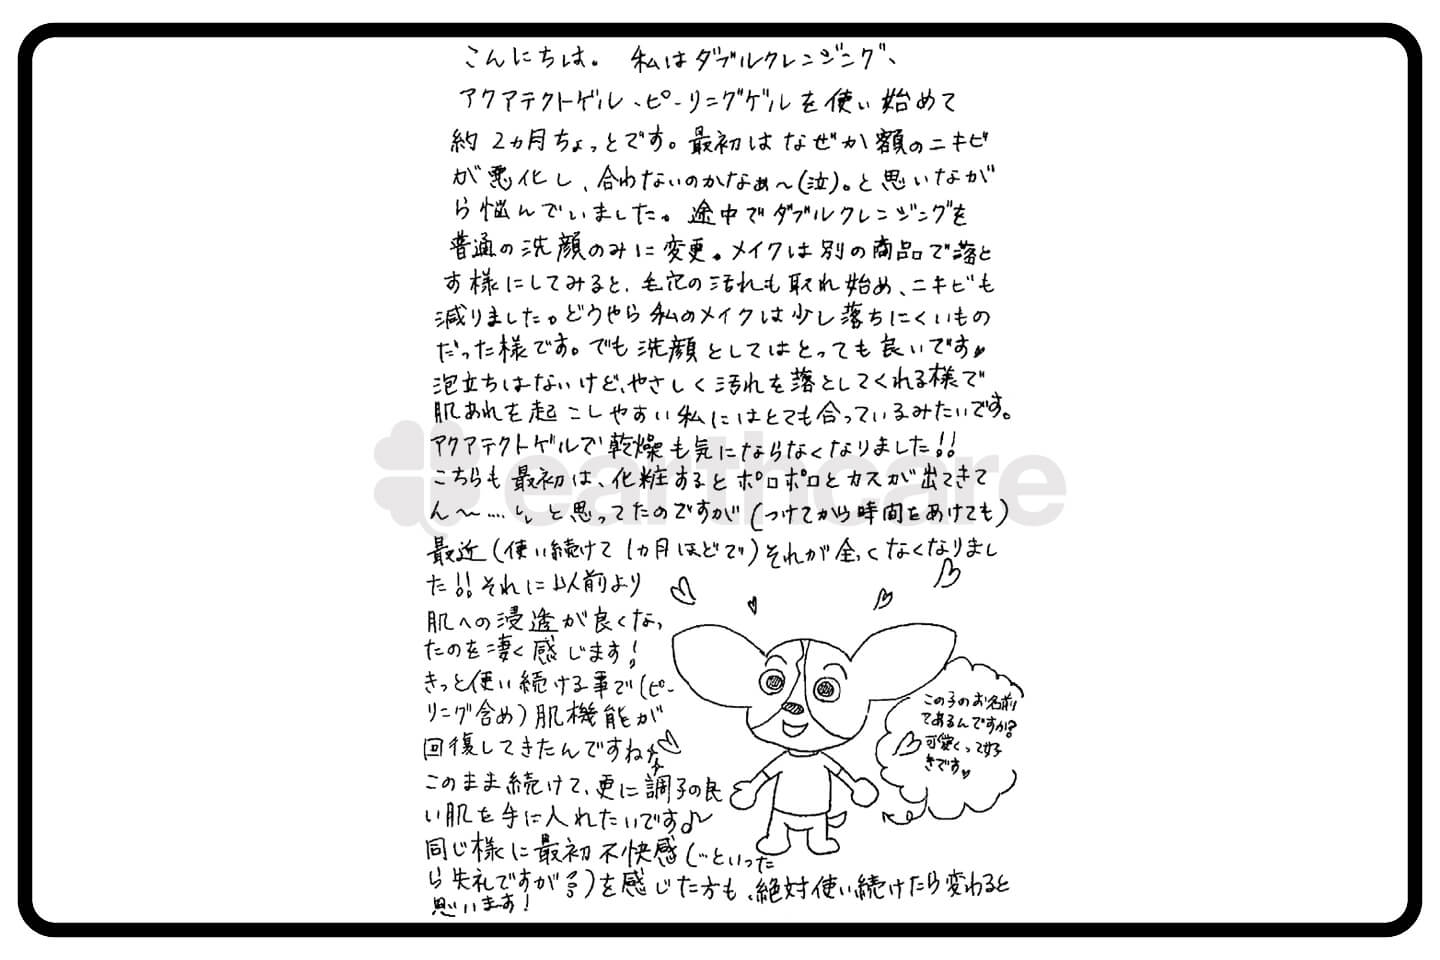 こんにちは。 私はダブルクレンジング、
アクアテクトゲル、ピーリングゲルを使い始めて
約2ヵ月ちょっとです。最初はなぜか額のニキビ
が悪化し、合わないのかなぁ〜(泣)。と思いなが
ら悩んでいました。途中でダブルクレンジングを
普通の洗顔のみに変更。メイクは別の商品で落と
す様にしてみると、毛穴の汚れも取れ始め、ニキビも
減りました。どうやら私のメイクは少し落ちにくいもの
だった様です。でも洗顔としてはとっても良いです♪
泡立ちはないけど、やさしく汚れを落としてくれる様で
肌あれを起こしやすい私にはとても合っているみたいです。
アクアテクトゲルで乾燥も気にならなくなりました!!
こちらも最初は、化粧するとポロポロとカスが出てきて
ん〜....。と思ってたのですが(つけてから時間をあけても)
最近(使い続けて1ヵ月ほどで)それが全くなくなりまし
た!!それに以前より
肌への浸透が良くなっ
たのを凄く感じます!
きっと使い続ける事で(ピー
リング含め)肌機能が
回復してきたんですね
このまま続けて、更に調子の良
い肌を手に入れたいです♪
同じ様に最初不快感(…といった
ら失礼ですが)を感じた方も、絶対使い続けたら変わると
思います!
この子のお名前
てあるんですか?
可愛くって好
きです♥
earthcare